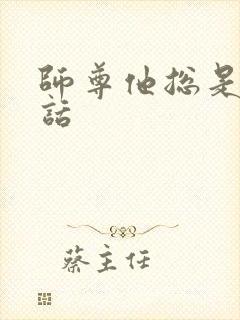 師尊他総是
話
蔡主任